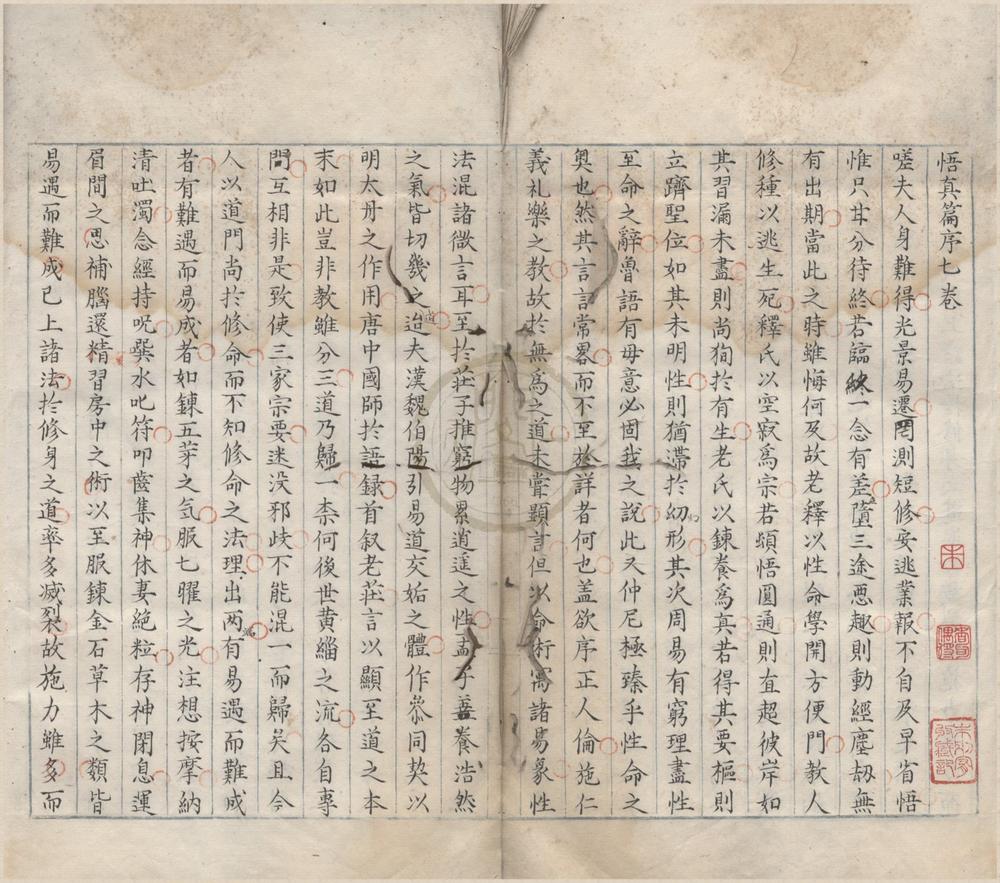 悟真篇序七卷
嗟夫人身難得光景易遷罔測短修安逃業報不自及早省悟
惟只甘分待終若臨終一念有差墮三途悪趣則動經塵刼無
有出期當此之時雖悔何及故老釋以性命學開方便門教人
修種以逃生死釋氏以空寂爲宗若頓悟圓通則直超彼岸如
其習漏未盡則尚狥於有生老氏以鍊養爲真若得其要樞則
立躋聖位如其未明性則猶滯於幻形其次周易有窮理盡性
至命之辭魯語有毋意必固我之說此又仲尼極臻乎性命之
奥也然其言言常畧而不至於詳者何也盖欲序正人倫施仁
義礼樂之教故於無爲之道未甞顕言但以命術寓諸易象性
法混諸微言耳至於莊子推窮物累逍遥之性孟子善養浩然
之氣皆切幾之迨夫漢魏伯陽引易道交姤之體作叅同契以
明太丹之作用唐中國師於語録首叙老莊言以顯至道之本
末如此豈非教雖分三道乃歸一柰何後世黄緇之流各自專
門互相非是致使三家宗要迷没邪歧不能混一而歸矣且今
人以道門尚於修命而不知修命之法理出两有易遇而難成
者有難遇而易成者如鍊五芽之気服七曜之光注想按摩納
清吐濁念經持呪噀水叱符叩齒集神休妻絶粒存神閉息運
眉間之思補腦還精習房中之術以至服鍊金石草木之類皆
易遇而難成已上諸法於修身之道率多滅裂故施力雖多而